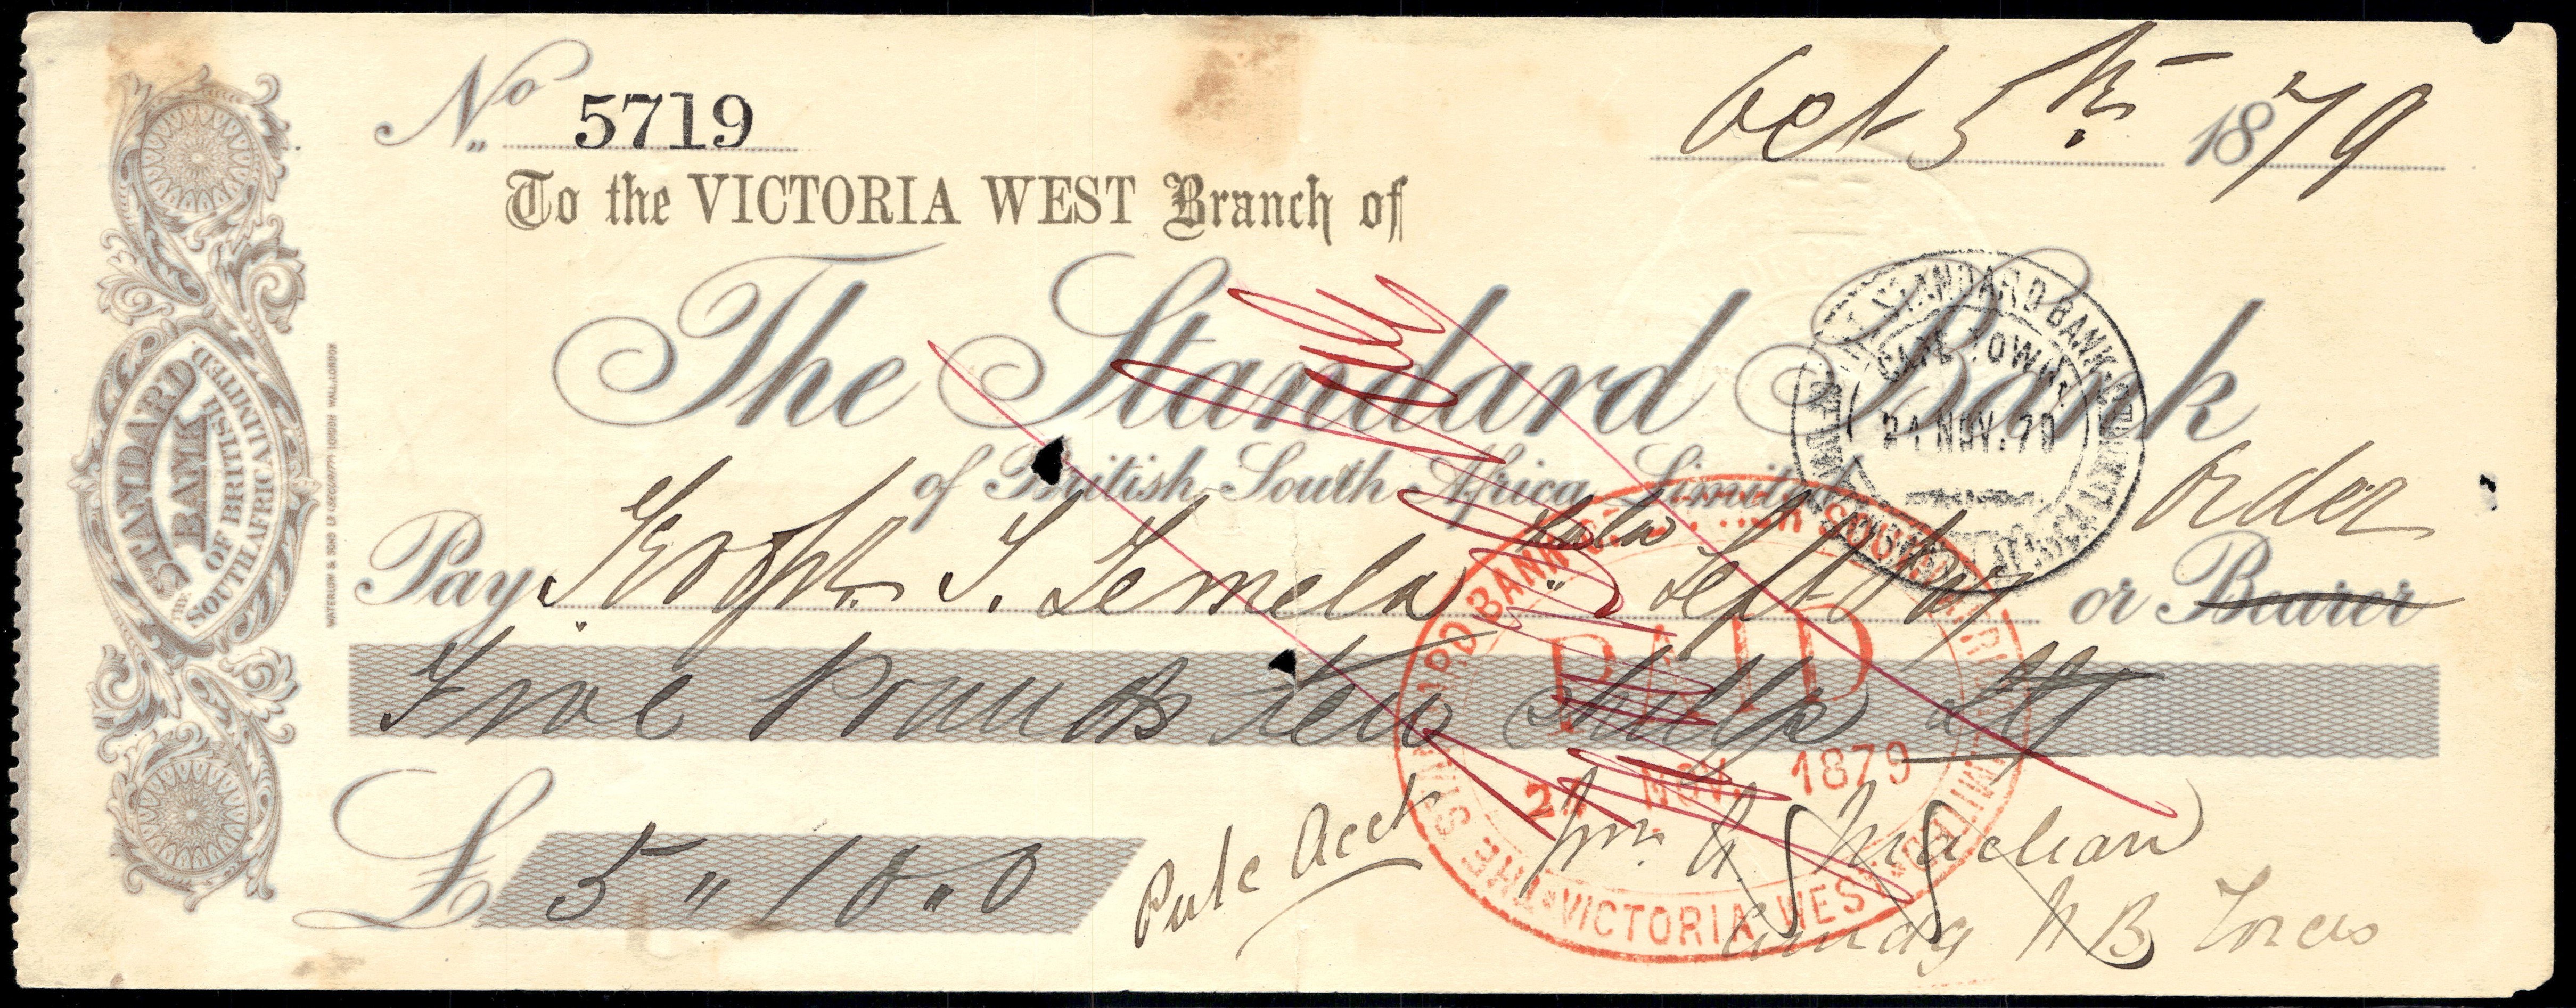 No 5719
Oct 5th 1879
To the VICTORIA WEST Branch of
The Standard Bank
of British South Africa Limited
order
Pay T. Lemela Sept Pay or Bearer
Five Pounds ten Stg
£ 5 " 10 " 0
Wm A. Maclean
Comdg N B
THE STANDARD BANK OF BRITISH SOUTH AFRICA, LIMITED
WATERLOW & SONS LD LONDON WALL, LONDON
THE STANDARD BANK OF BRITISH SOUTH AFRICA LIMITED
CAPE TOWN
21 NOV. 79
THE STANDARD BANK OF BRITISH SOUTH AFRICA LIMITED
PAID
NOV. 1879
VICTORIA WEST